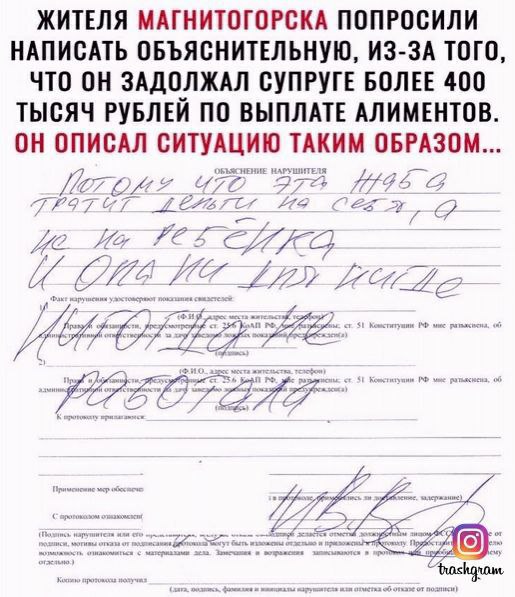 ЖИТЕЛЯ МАГНИТОГОРСКА ПОПРОСИЛИ
НАПИСАТЬ ОБЪЯСНИТЕЛЬНУЮ, ИЗ-ЗА ТОГО,
ЧТО ОН ЗАДОЛЖАЛ СУПРУГЕ БОЛЕЕ 400
ТЫСЯЧ РУБЛЕЙ ПО ВЫПЛАТЕ АЛИМЕНТОВ.
ОН ОПИСАЛ СИТУАЦИЮ ТАКИМ ОБРАЗОМ...
ОБЪЯСНЕНИЕ НАРУШИТЕЛЯ
Потому что эта жаба
тратит деньги на себя, а
не на ребёнка
и она ни дня нигде
Факт нарушения удостоверяют показания свидетелей:
1)
(Ф.И.О., адрес места жительства, телефон)
никогда не
Права и обязанности, предусмотренные ст. 25.6 КоАП РФ, мне разъяснены; ст. 51 Конституции РФ мне разъяснена, об
административной ответственности за дачу заведомо ложных показаний предупрежден(а)
(подпись)
2)
(Ф.И.О., адрес места жительства, телефон)
Права и обязанности, предусмотренные ст. 25.6 КоАП РФ, мне разъяснены; ст. 51 Конституции РФ мне разъяснена, об
административной ответственности за дачу заведомо ложных показаний предупрежден(а)
работала
(подпись)
К протоколу прилагаются:
Применение мер обеспече
в протоколе, (применялись ли доставление, задержание)
С протоколом ознакомлен
(Подпись нарушителя или его
делается отметка должностным лицом
подписи, мотивы отказа от подписания протокола могут быть изложены отдельно и приложены к протоколу.
возможность ознакомиться с материалами дела. Замечания и возражения записываются в протокол или
отдельно.)
Копию протокола получил
(дата, подпись, фамилия и инициалы нарушителя или отметка об отказе от подписи)
trashgram